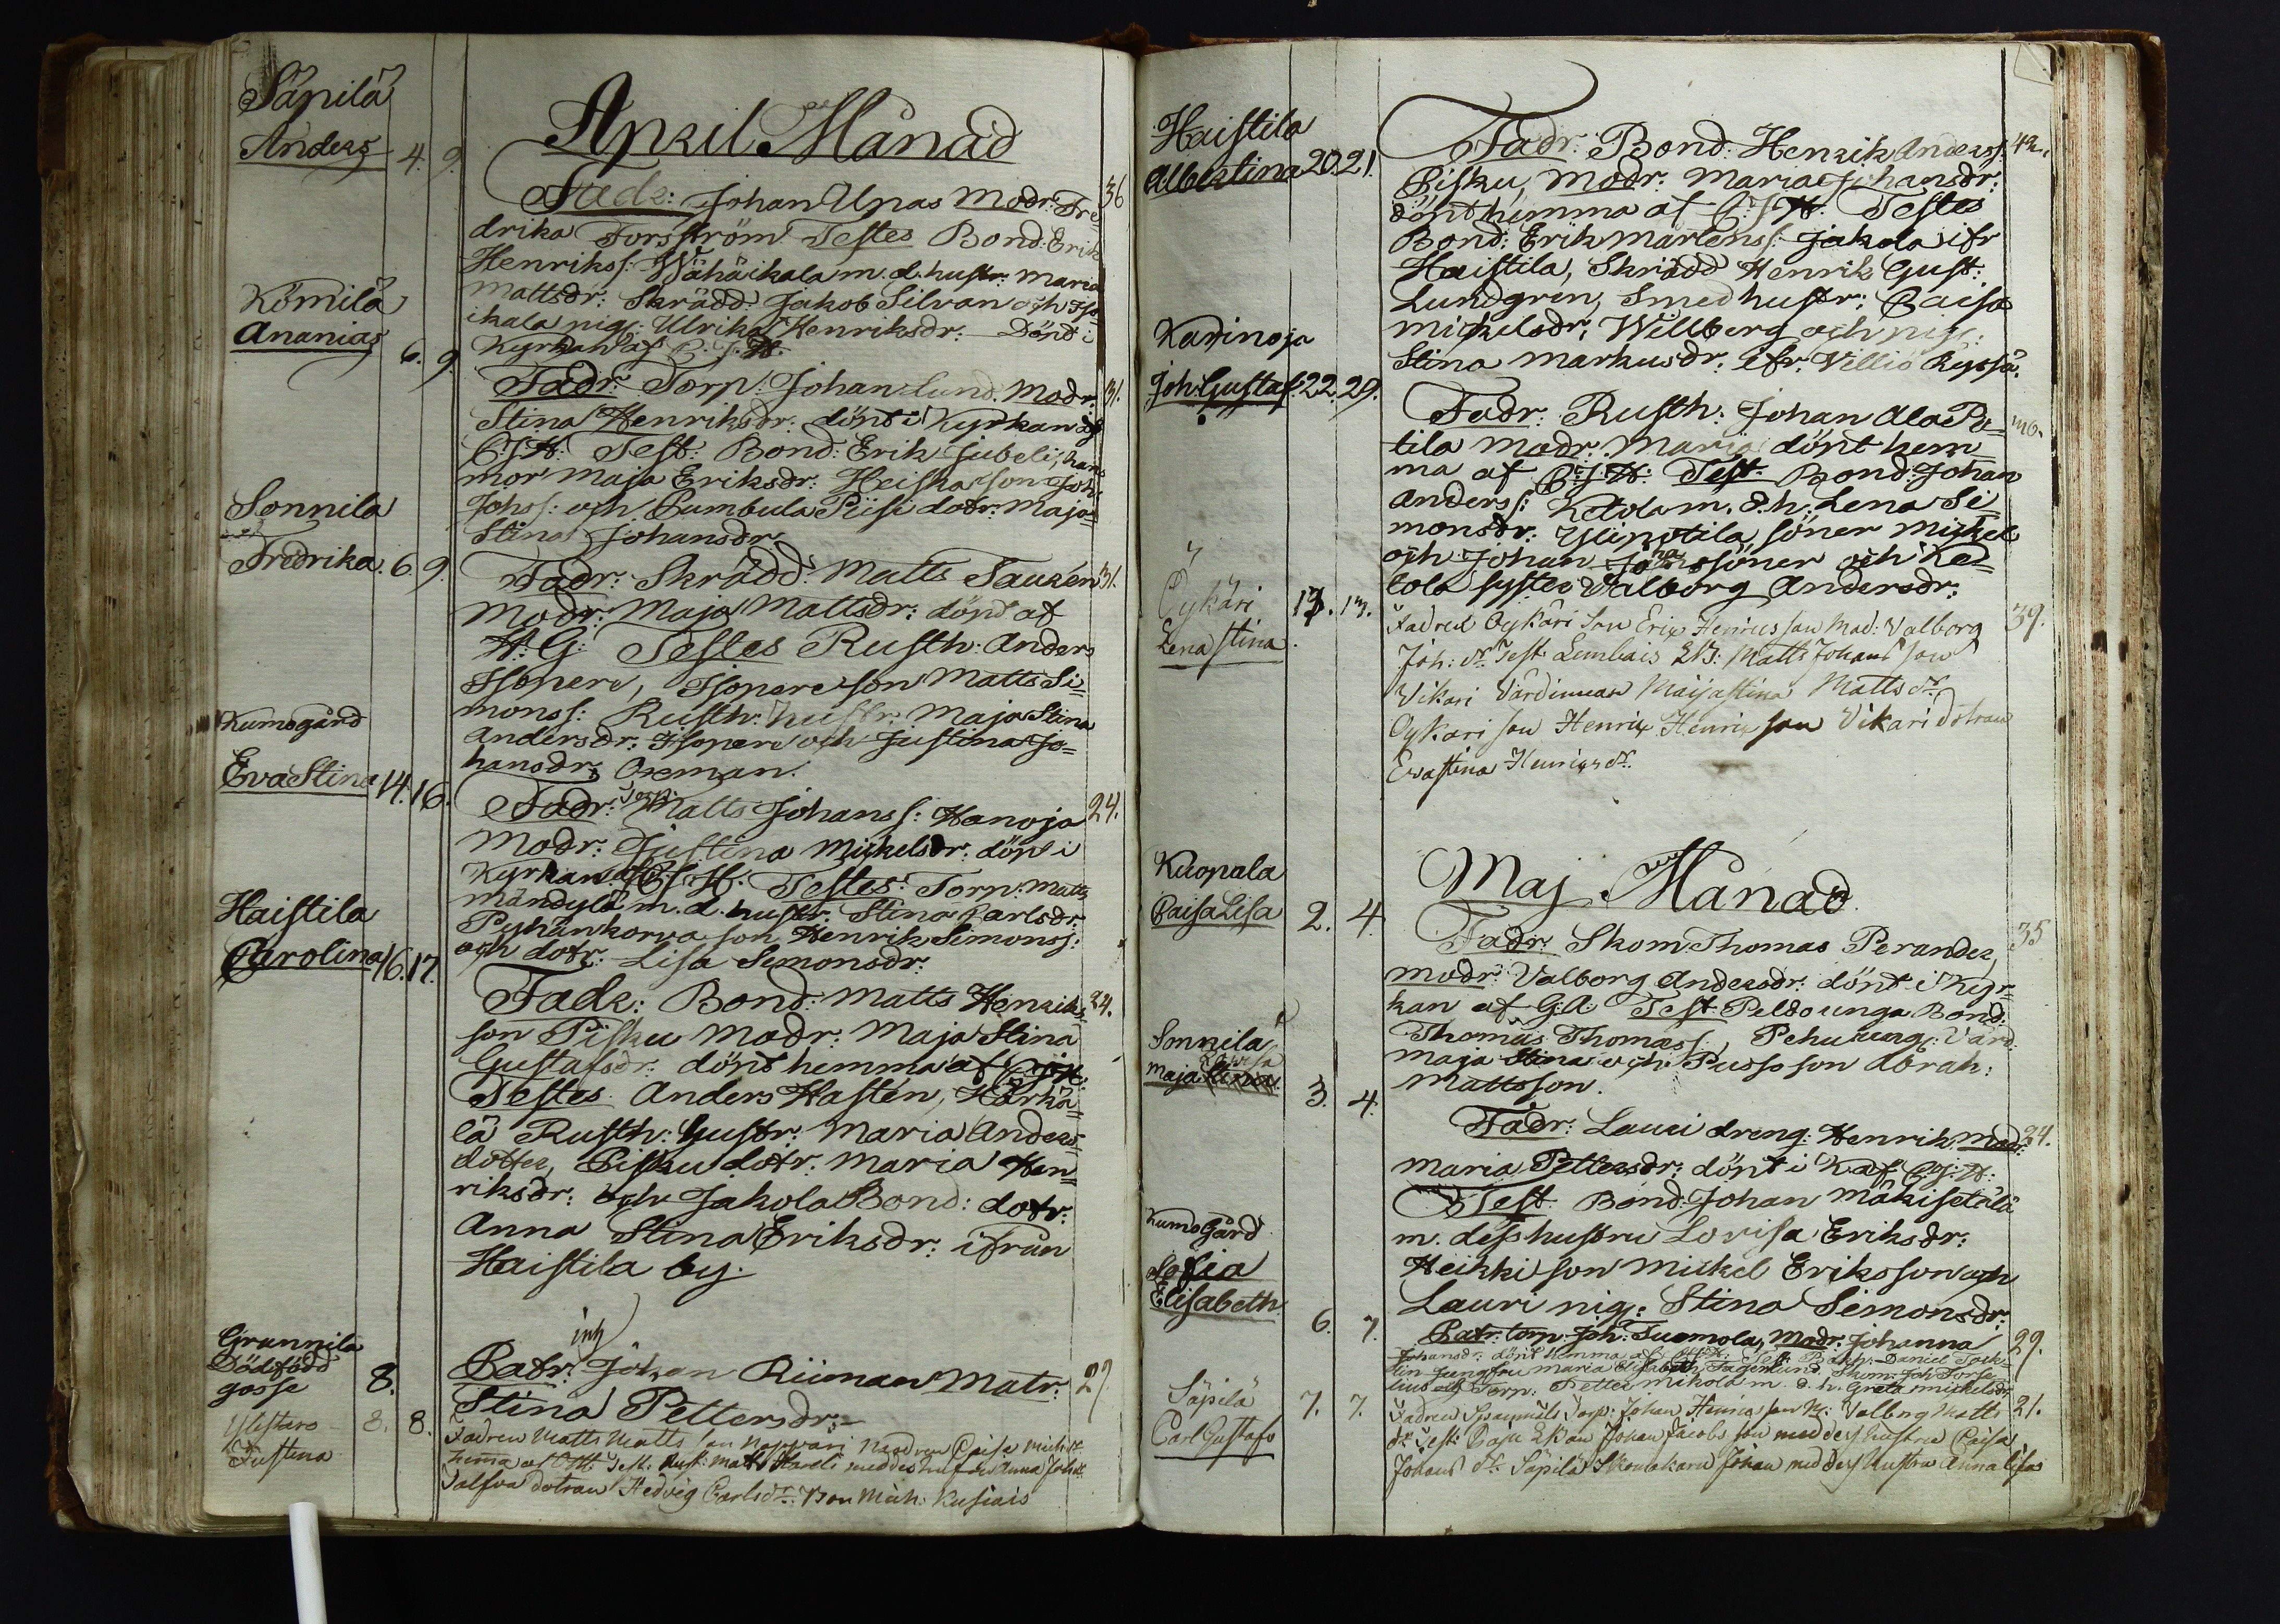 Säpilä
Anders 4. 9.
April Månad
Fadr: Johan Upas Modr: Fre 36
drika Forsström Testes Bond: Erik
Henrikss: Wähäikala m. d. hustr: Maria
Mattsdr: Skrädd: Jakob Silvan och Iso
ikala pig: Ulrika Henriksdr: Dönt i
Kyrkan af C. J. H.
Kömilä
Ananias 6. 9.
Fadr: Torp: Johan Lund. Modr: 31.
Stina Henriksdr: dönt i Kyrkan af
C: J: H: Test: Bond: Erik Jubeli, hans
mor Maja Eriksdr: Heiska son Joh:
Johss: och Pumbula Piisi dotr: Maja
Stina Johansdr
Sonnila
Fredrika. 6. 9.
Fadr: Skrädd: Matts Tauren 31.
Modr: Maja Mattsdr: dönt af
H: G: Testes Rusth: Anders
Isopere, Isopere son Matts Si=
monss: Rusth: hustr: Maja Stina
Andersdr: Isopere och Justina Jo=
hansdr: Oxeman.
Kumogård
Eva Stina 14. 16.
Fadr: Torp: Matts Johanss: Hanoja 24.
Modr: Justina Mickelsdr: dönt i
Kyrkan af C J H: Testes: Torp: Matts
Mändylä m. d. hustr: Stina Karlsdr:
Pyhänkorva son Henrik Simonss:
och dotr: Lisa Simonsdr:
Haistila
Carolina 16. 17.
Fadr: Bond: Matts Henriks= 24.
son Pisku Modr: Maja Stina
Gustafsdr: dönt hemma af C: J: H:
Testes Anders Hastén, Härkä=
lä Rusth: Hustr: Maria Anders=
dotter, Pisku dotr. Maria Hen=
riksdr: och Jakola Bond: dotr:
Anna Stina Eriksdr: ifrån
Haistila by.
Grunnila
Dödfödd
gosse 8.
inh
Patr: Johan Riiman Matr: 27
Stina Pettersdr:
Ylistaro 8. 8.
Justina
Fadren Matts Matts son Noppari modren Caisa Mich: dr
hema af C J H: Test: Rust: Matts Hareli med des hustru Anna Johdr:
dotran Hedvig Carlsdr: Bon Mich: Kusiais
Haistila
Albertina 20. 21.
Fadr: Bond: Henrik Anderss: 42.
Pisku, Modr: Maria Johansdr:
dönt hemma af C: J: H: Testes
Bond: Erik Mårtenss: Jakola ifr
Haistila, Skrädd Henrik Gust:
Lundgrén, Smed hustr: Caisa
Mickelsdr: Willberg och pig:
Stina Markusdr: ifr: Villiö
Karinoja
Joh: Gustaf. 22. 29.
Fadr: Rusth: Johan Ala Po=
tila Modr: Maria dönt hem
ma af C: J: H: Test: Bond: Johan
Anderss: Ketola m. d. h: Lena Si
monsdr: Ylipotila söner Mickel
och Johan söner och Ket=
tola syster Valborg Andersdr:
Öykäri 13. 13.
Lena Stina
Fadren Öykäri Son Erix Henrics son Mod: Valborg 39.
Joh: dr Test: Lembais Matts Johans son
Vikari Värdinnan Maijastina Matts dr
Öykäri son Henrix Henrix son Vikari dotran
Evastina Henrixs dr.
Maj Månad
Kuopala
Caisa Lisa 2. 4.
Fadr: Skom: Thomas Perander, 35
modr: Valborg Andersdr: dönt i Kyr=
kan af G: A: Test: Peldo unga Bond:
Thomas Thomass:, Pehu ung: Värd:
Maja Stina och Pusso son Abrah:
Mattsson.
Sonnila
Maja Lovisa 3. 4.
Fadr: Lauri dreng: Henrik Modr: 24.
Maria Pettersdr: dönt i K: af C: J: H:
Test Bond: Johan Mäkisetälä
m. dess hustru Lovisa Eriksdr:
Heikki son Mickel Eriksson och
Lauri pig: Stina Simonsdr:
Kumo Gård
Sofia
Elisabeth 6. 7.
Patr: torp: Joh: Tuomola, Modr: Johanna 29.
Johansdr: dönt hemma af C J H: Test: Daniel
lin Jungfru Maria Elisabeth Fagerlund, Skom: Joh: Forse
lius och Torp: Petter Mikola m. d. h. Greta Mickelsdr:
Säpilä 7. 7.
Carl Gustaf
Fadren Torp: Johan Henrics son M: Valborg Matts 21.
dr Test: Caju Johan Jacobs son med des hustru Caisa
Johans dr: Säpilä Skomakare Johan med des hustru Anna Lisa